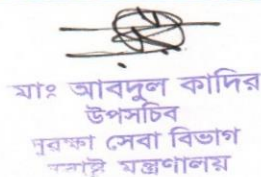 মোঃ আবদুল কাদির
উপসচিব
সুরক্ষা সেবা বিভাগ
স্বরাষ্ট্র মন্ত্রণালয়